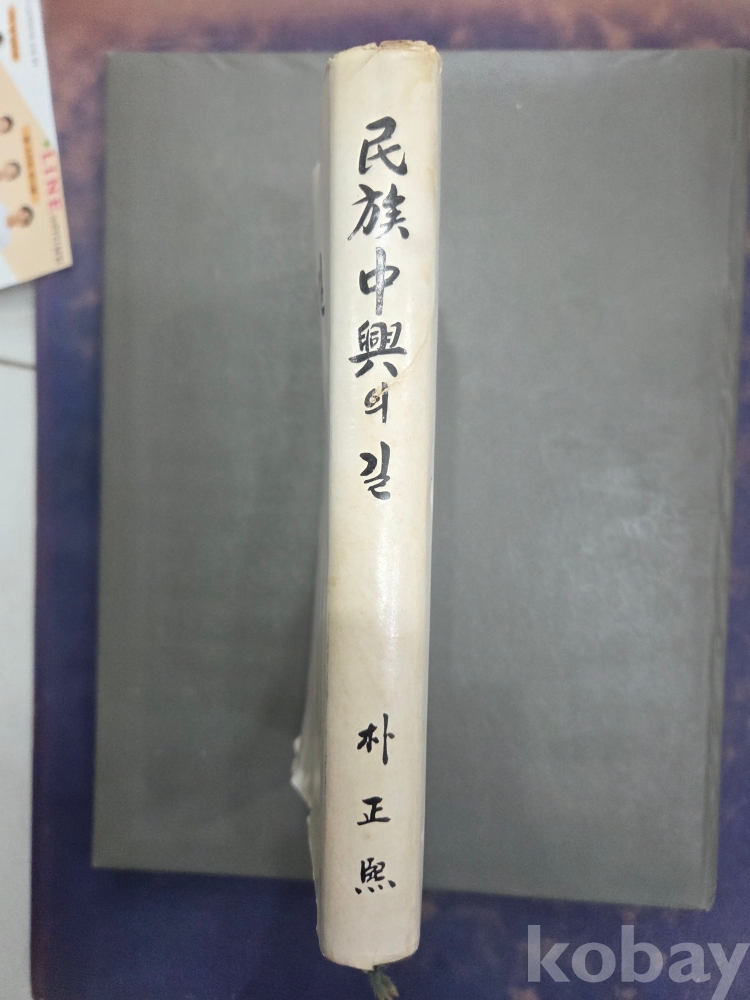 民族中興의 길
朴正熙
LINE
kobay